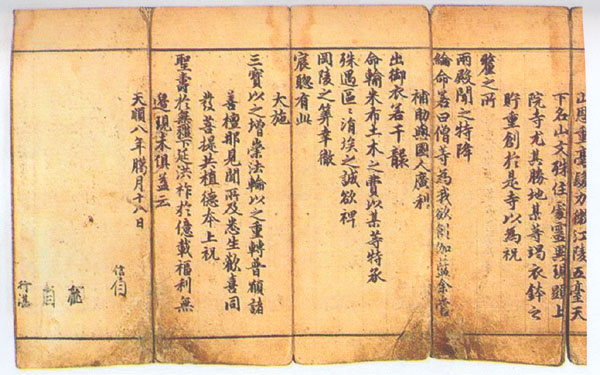 山恩重毫髮力微江陵五臺天
下名山文殊住處靈異現顯上
院寺尤其勝地某等竭衣鉢之
貯重創於是寺以爲祝
釐之所
兩殿聞之特降
綸命若曰僧等爲我欲創伽藍余當
補助與國人廣利
出御衣若干襲
命輸米布土木之費以某等特承
殊遇區區涓埃之誠欲裨
岡陵之算幸徹
宸聰有此
大施
三寶以之增崇法輪以之重轉普願諸
善檀那見聞所及悉生歡喜同
發菩提共植德本上祝
聖壽於無疆下延洪祚於億載福利無
邊現未俱益云
天順八年臘月十八日
信
行湛